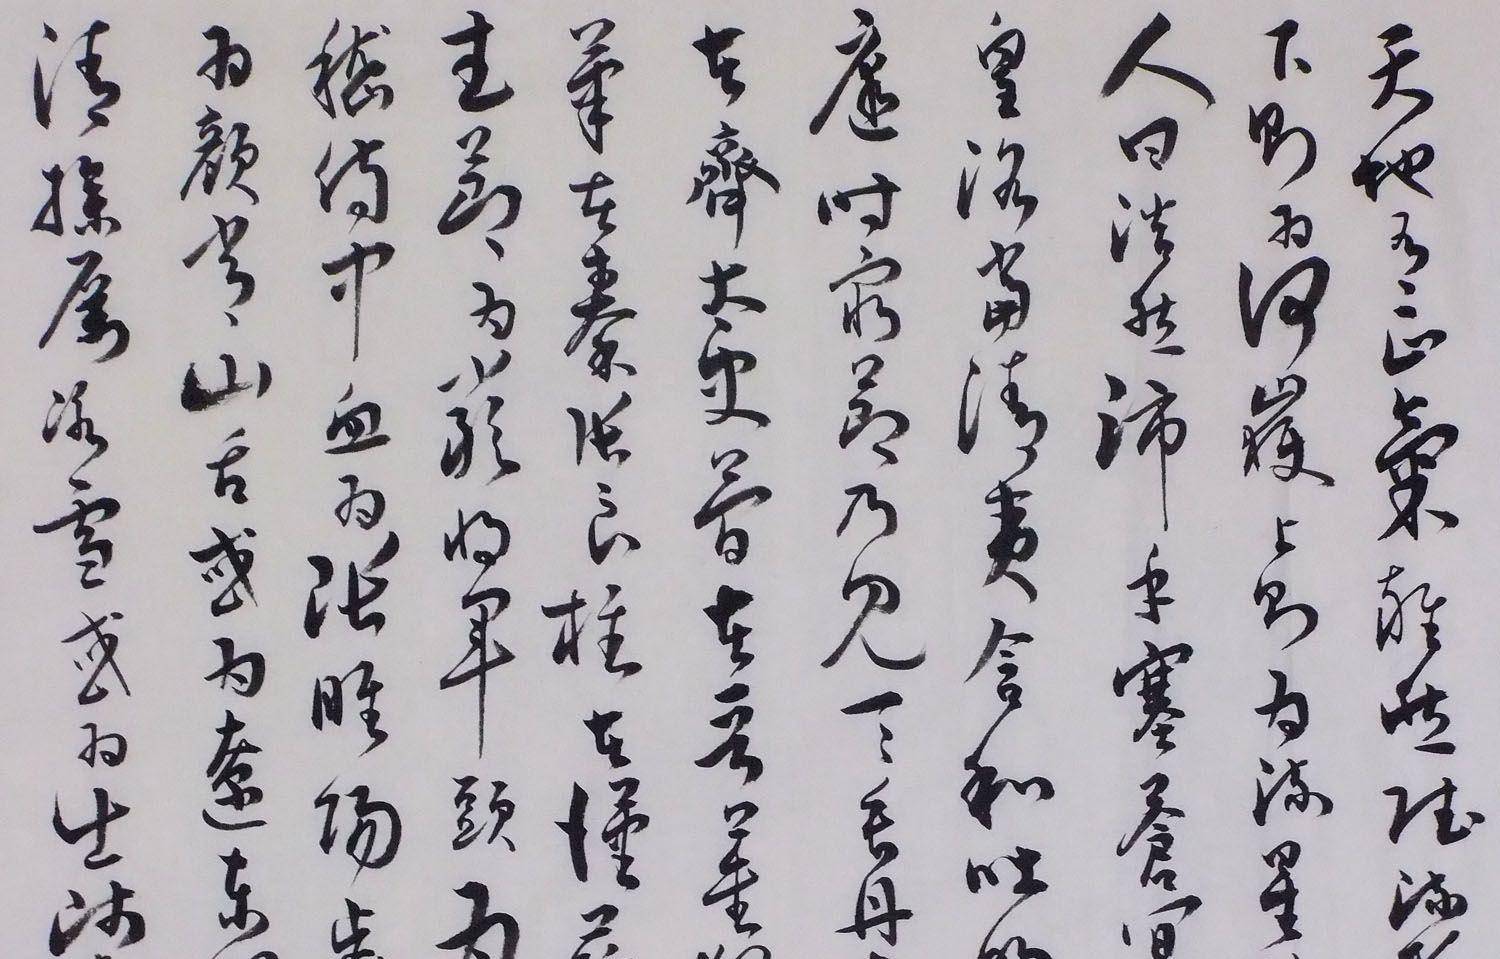 天地有正氣雜然賦流形
下則為河嶽上則為日星
人曰浩然沛乎塞蒼冥
皇路當清夷含和吐明
庭時窮節乃見一一垂丹
在齊太史簡在晉董狐
筆在秦張良椎在漢蘇
武節為嚴將軍頭為
嵇侍中血為張睢陽齒
為顏常山舌或為遼東
清操厲冰雪或為出師